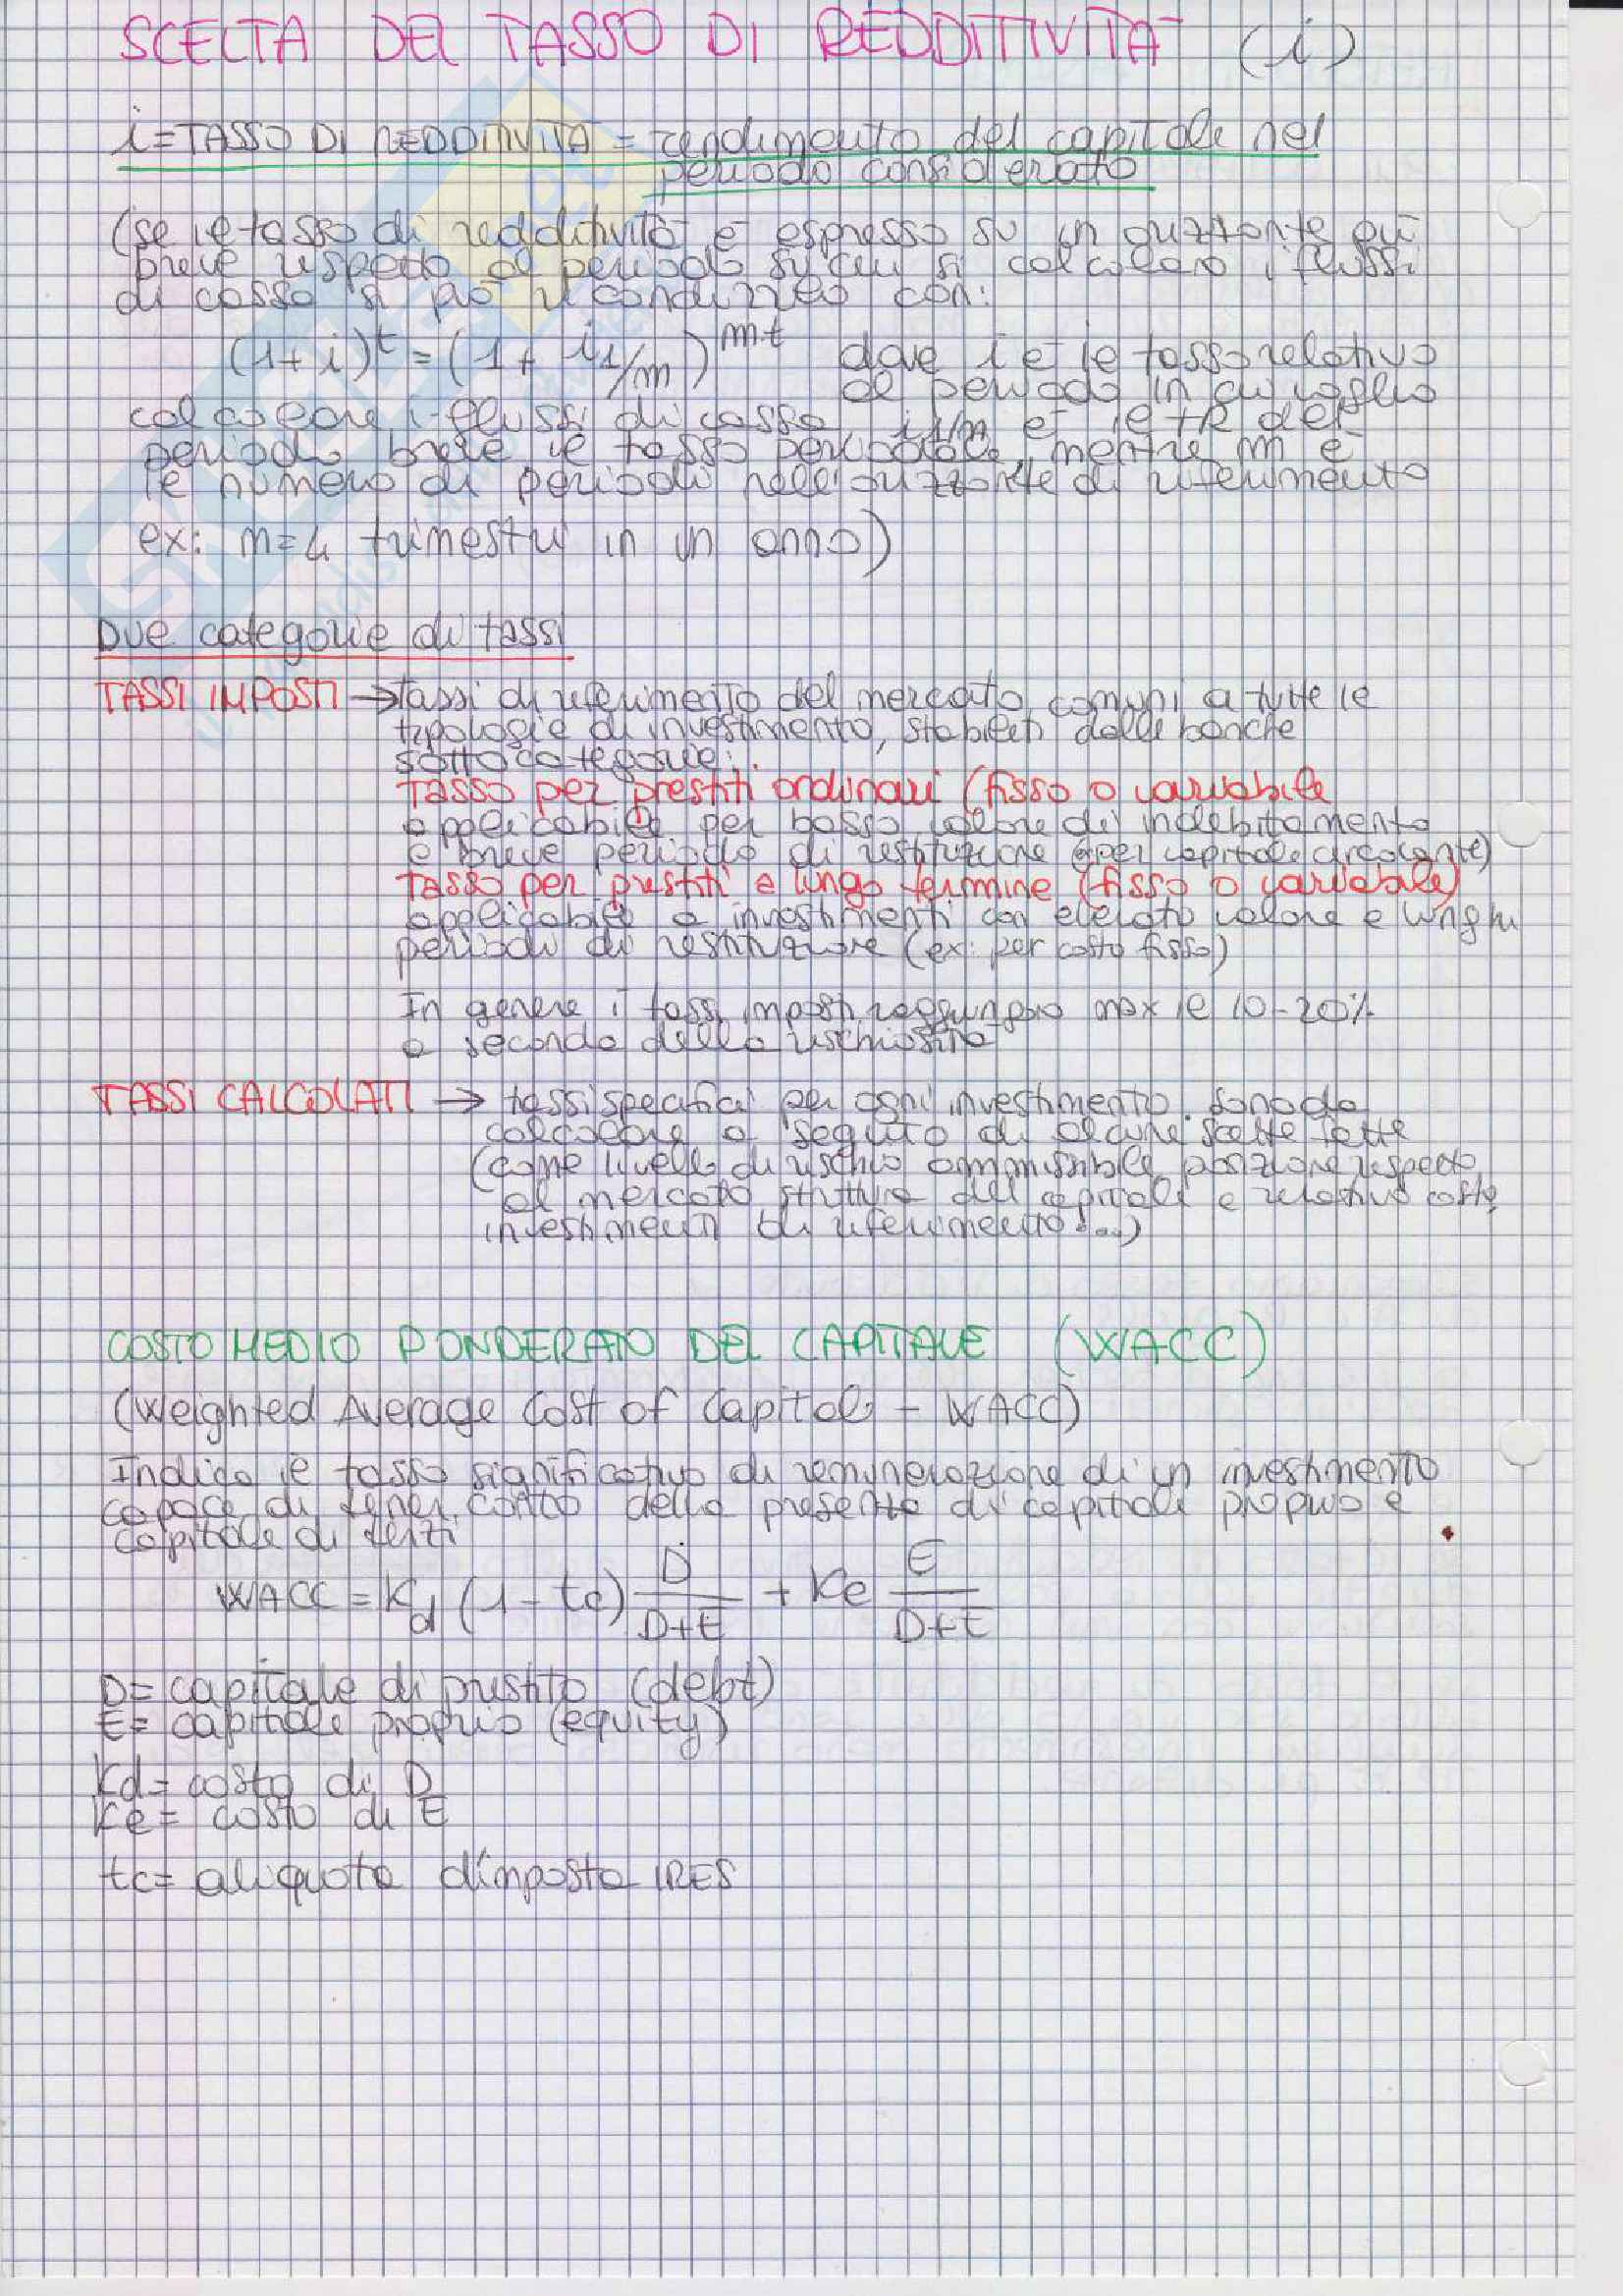 SCELTA DEL TASSO DI REDDITIVITÀ (i)
i = TASSO DI REDDITIVITÀ = rendimento del capitale nel
periodo considerato
(se il tasso di redditività è espresso su un orizzonte più
breve rispetto al periodo su cui si calcolano i flussi
di cassa si può ricondurreo con:
(1+i)^t = (1 + i1/m)^m·t dove i è il tasso relativo
al periodo in cui voglio
calcolare i flussi di cassa i1/m è il tR del
periodo breve il tasso periodale, mentre m è
il numero di periodi nell'orizzonte di riferimento
ex: m=4 trimestri in un anno)
Due categorie di tassi
TASSI IMPOSTI → tassi di riferimento del mercato, comuni a tutte le
tipologie di investimento, stabiliti dalle banche
sottocategorie:
Tasso per prestiti ordinari (fisso o variabile
applicabile per basso valore di indebitamento
e breve periodo di restituzione (per capitale circolante)
Tasso per prestiti a lungo termine (fisso o variabile)
applicabile a investimenti con elevato valore e lunghi
periodi di restituzione (ex: per costo fisso)
In genere i tassi imposti raggiungono max il 10-20%
a seconda della rischiosità
TASSI CALCOLATI → tassi specifici per ogni investimento. Sono da
calcolare a seguito di alcune scelte fatte
(come livello di rischio ammissibile, posizione rispetto
al mercato, struttura del capitale e relativo costo,
investimenti di riferimento...)
COSTO MEDIO PONDERATO DEL CAPITALE (WACC)
(Weighted Average Cost of Capital - WACC)
Indica il tasso significativo di remunerazione di un investimento
capace di tener conto della presenza di capitale proprio e
capitale di terzi
WACC = Kd (1 - tc) D/D+E + Ke E/D+E
D = capitale di prestito (debt)
E = capitale proprio (equity)
Kd = costo di D
Ke = costo di E
tc = aliquota d'imposta IRES